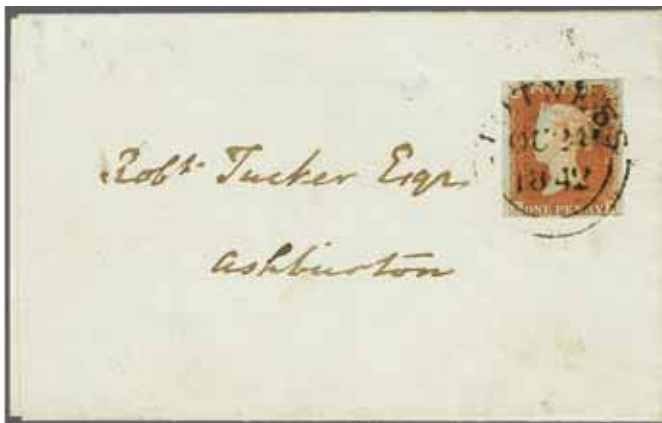 POSTAGE
TOTNES
OC 24
1842
ONE PENNY
Robt. Tucker Esqr.
Ashburton